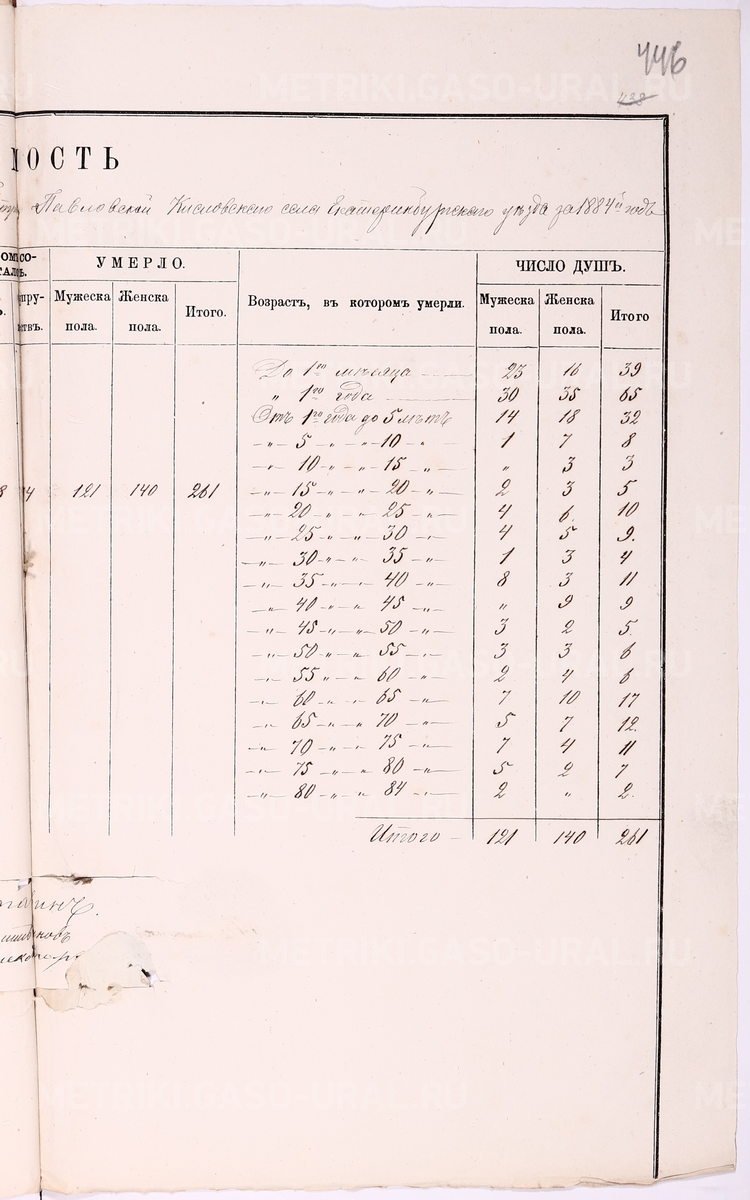 446
438
МОСТЬ
Павловской Кисловского села Екатеринбургскаго уѣзда за 1884й годъ
УМЕРЛО.
ЧИСЛО ДУШЪ.
Мужеска пола.
Женска пола.
Итого.
Возрастъ, въ которомъ умерли.
Мужеска пола.
Женска пола.
Итого
До 1го мѣсяца 23 16 39
„ 1го года 30 35 65
Отъ 1го года до 5 лѣтъ 14 18 32
„ 5 „ „ 10 „ 1 7 8
„ 10 „ „ 15 „ „ 3 3
4 121 140 261 „ 15 „ „ 20 „ 2 3 5
„ 20 „ „ 25 „ 4 6 10
„ 25 „ „ 30 „ 4 5 9.
„ 30 „ „ 35 „ 1 3 4
„ 35 „ „ 40 „ 8 3 11
„ 40 „ „ 45 „ „ 9 9
„ 45 „ „ 50 „ 3 2 5.
„ 50 „ „ 55 „ 3 3 6
„ 55 „ „ 60 „ 2 4 6
„ 60 „ „ 65 „ 7 10 17
„ 65 „ „ 70 „ 5 7 12.
„ 70 „ „ 75 „ 7 4 11
„ 75 „ „ 80 „ 5 2 7
„ 80 „ „ 84 „ 2 „ 2.
Итого 121 140 261
METRIKI.GASO-URAL.RU